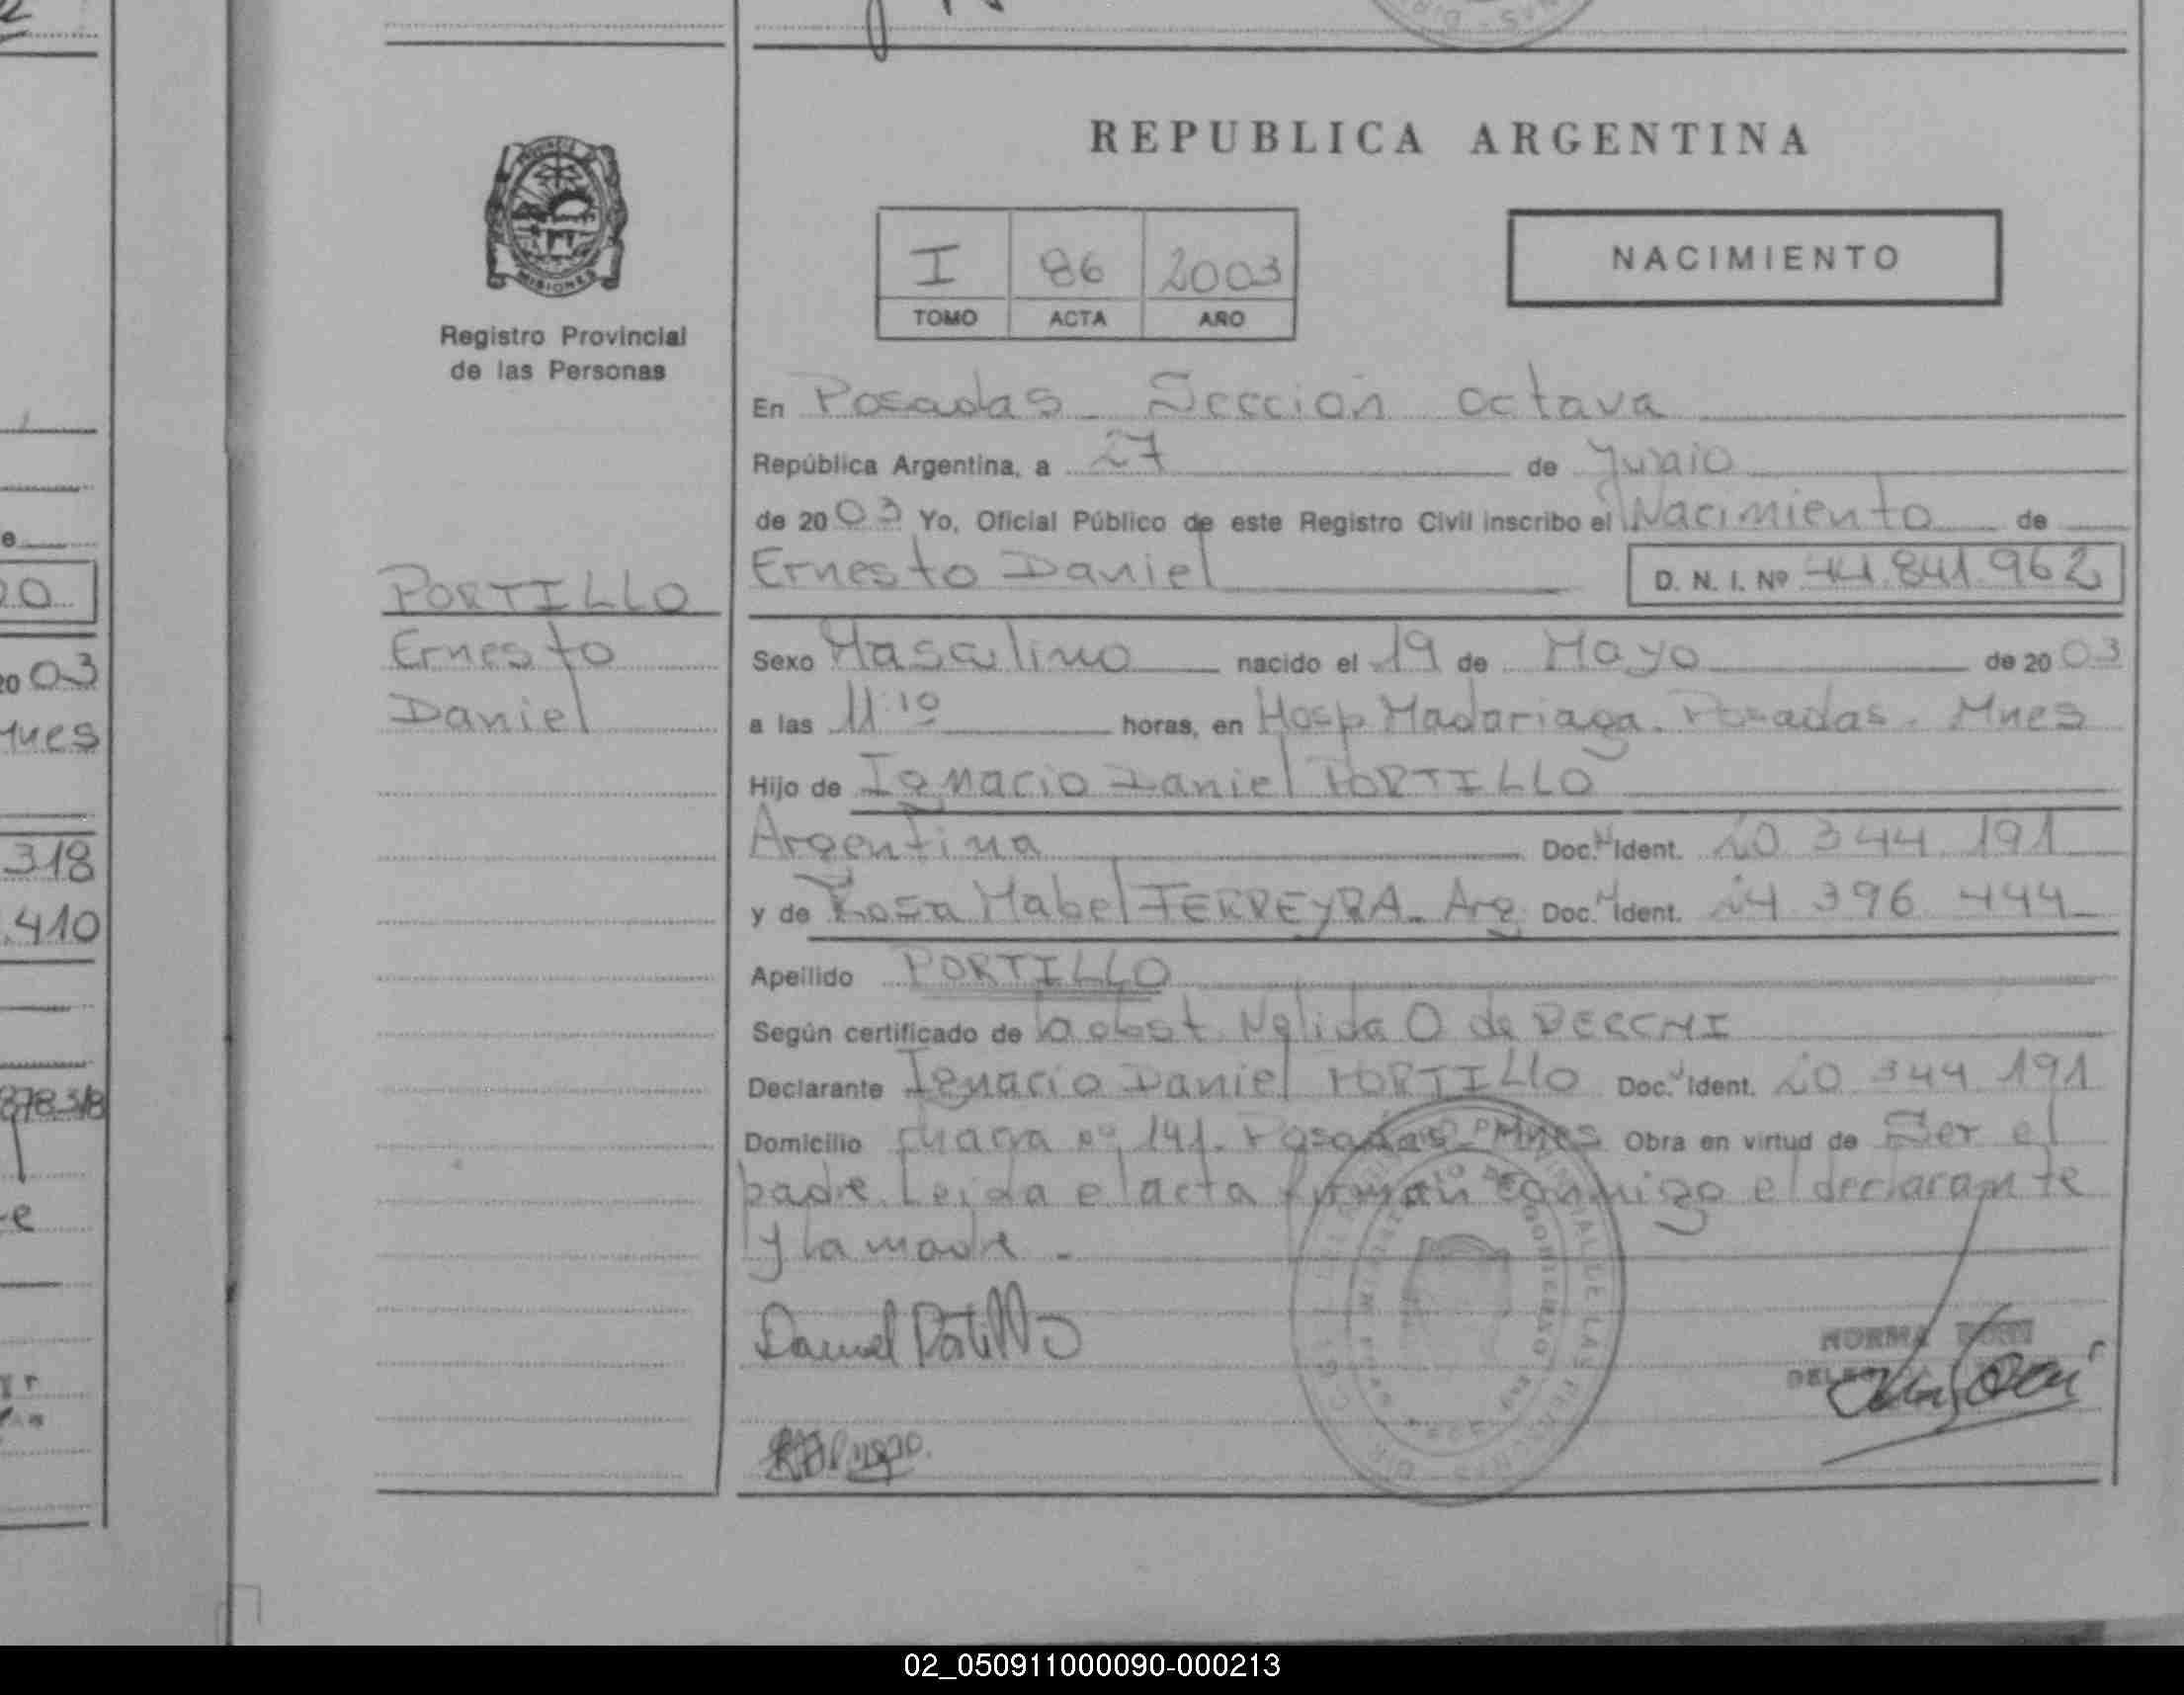 REPUBLICA ARGENTINA
PROVINCIA DE
MISIONES
Registro Provincial
de las Personas
I 86 2003
TOMO ACTA AÑO
NACIMIENTO
En Posadas - Sección octava
República Argentina, a 27 de Junio
de 2003 Yo, Oficial Público de este Registro Civil inscribo el Nacimiento de
Ernesto Daniel D. N. I. Nº 44.841.962
PORTILLO
Ernesto
Daniel
Sexo Masculino nacido el 19 de Mayo de 2003
a las 11:10 horas, en Hosp Madariaga. Posadas. Mnes
Hijo de Ignacio Daniel PORTILLO
Argentina Doc. Ident. 20 344 191
y de Rosa Mabel FERREYRA. Arg Doc. Ident. 24 396 444
Apellido PORTILLO
Según certificado de la obst. Nelida O de
Declarante Ignacio Daniel PORTILLO Doc. Ident. 20 344 191
Domicilio chacra nº 141. Posadas - Mnes Obra en virtud de Ser el
padre. Leida el acta firman conmigo el declarante
y la madre -
Daniel Portillo
NORMA
20
03
Mnes
318
.410
87838
e
02_050911000090-000213